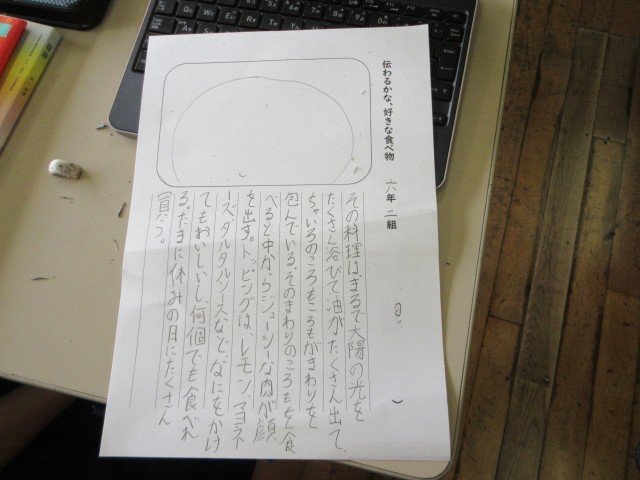 伝わるかな、好きな食べ物 六年 二組
その料理は、まるで太陽の光を
たくさん浴びて油がたくさん出て、
ちゃいろのころもころもがまわりを
包んでいる。そのまわりのころもを食
べると中からジューシーな肉が顔
を出す。トッピングは、レモン、マヨネ
ーズ、タルタルソースなど、なにをかけ
てもおいしいし、何個でも食べれ
る。たまに休みの日にたくさん
買う。